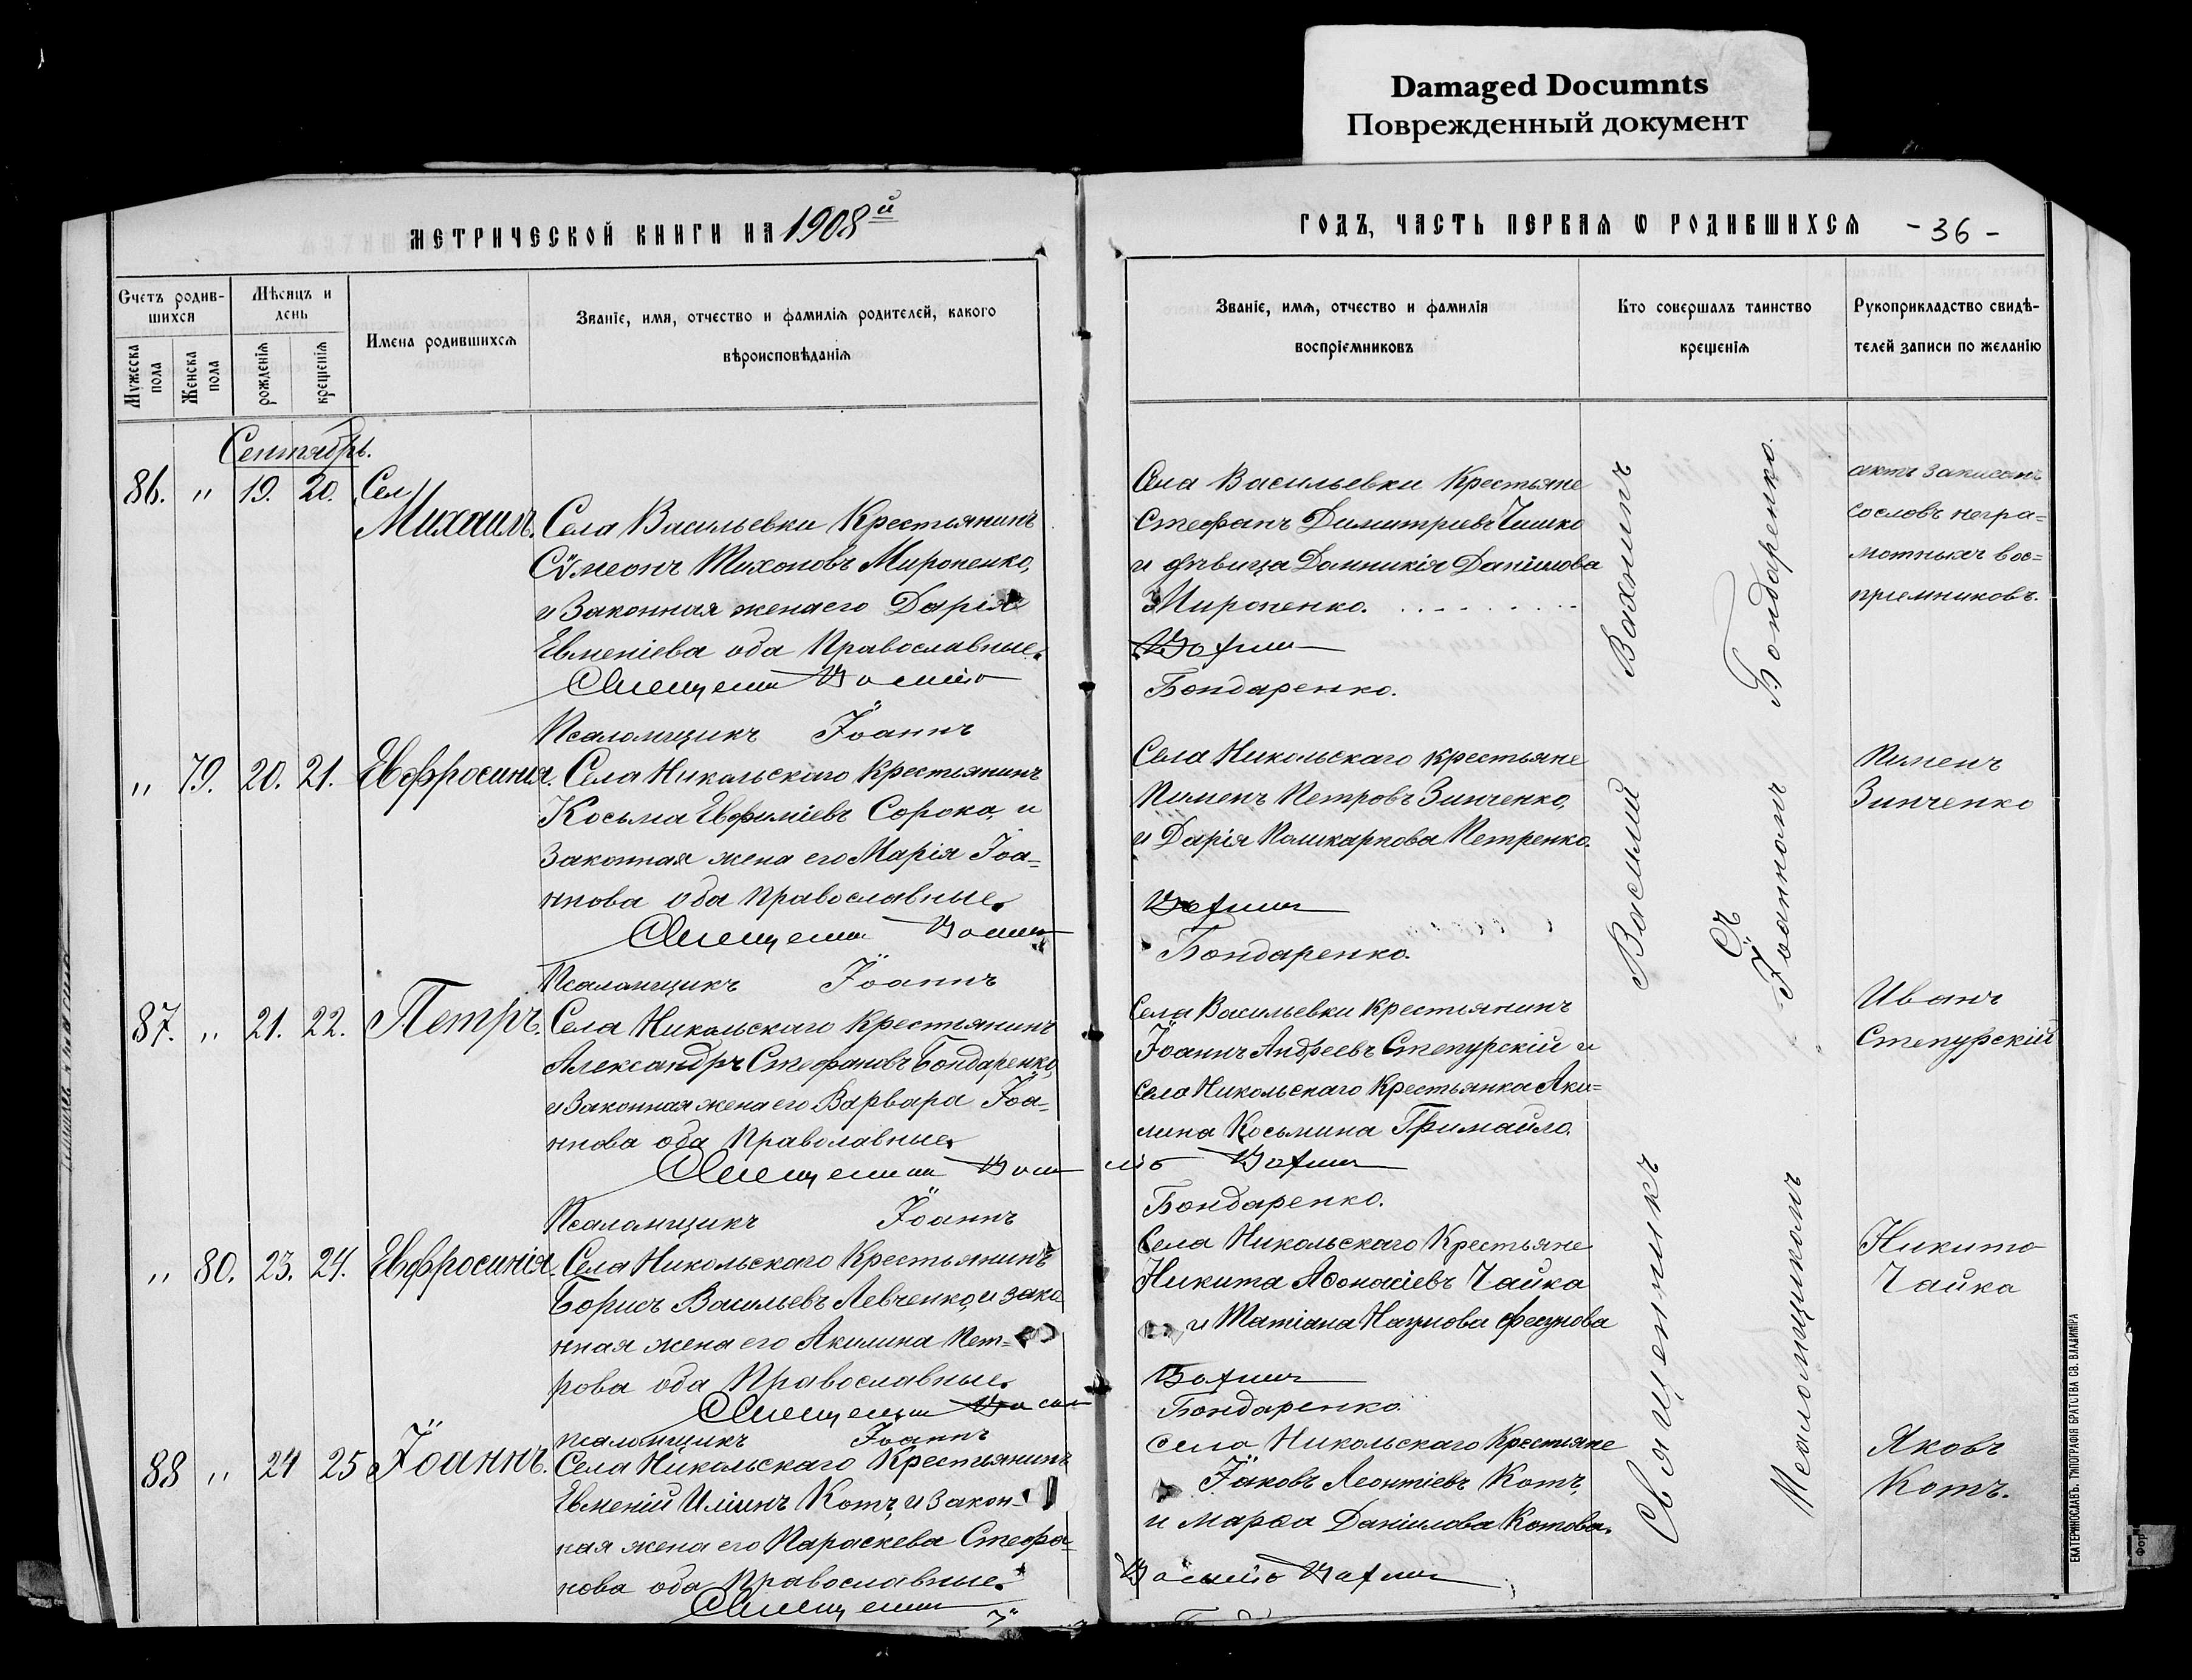 Damaged Documnts
Поврежденный документ
МЕТРИЧЕСКОЙ КНИГИ НА 1908й
ГОДЪ, ЧАСТЬ ПЕРВАЯ Ѡ РОДИВШИХСЯ
- 36 -
Счетъ родив-
шихся
Мужеска пола
Женска пола
Мѣсяцъ и
день
рожденія
крещенія
Имена родившихся
Званіе, имя, отчество и фамилія родителей, какого
вѣроисповѣданія
Званіе, имя, отчество и фамилія
воспріемниковъ
Кто совершалъ таинство
крещенія
Рукоприкладство свидѣ-
телей записи по желанію
Сентябрь.
86. " 19. 20. Сел
Михаилъ.
Села Васильевки Крестьянинъ
Сѵмеонъ Тихоновъ Мироненко,
и Законная жена его Дарія
Евменіева оба Православные.
Священникъ Василій
Псаломщикъ Іоаннъ
Села Васильевки Крестьяне
Стефанъ Димитріевъ Чишко
и дѣвица Домникія Даніилова
Мироненко.
Вахнинъ
Бондаренко.
актъ записанъ
со словъ негра=
мотныхъ вос=
пріемниковъ.
" 79. 20. 21. Евфросинія.
Села Никольскаго Крестьянинъ
Косьма Евфиміевъ Сорока, и
Законная жена его Марія Іоа-
ннова оба Православные.
Священникъ Василій
Псаломщикъ Іоаннъ
Села Никольскаго крестьяне
Пименъ Петровъ Зинченко,
и Дарія Поликарпова Петренко.
Вахнинъ
Бондаренко.
Пименъ
Зинченко
87. " 21. 22. Петръ.
Села Никольскаго Крестьянинъ
Александръ Стефановъ Бондаренко,
и Законная жена его Варвара Іоа-
ннова оба Православные.
Священникъ Василій Вахнинъ
Псаломщикъ Іоаннъ
Бондаренко.
Села Васильевки Крестьянинъ
Іоаннъ Андреевъ Степурскій и
села Никольскаго Крестьянка Аки=
лина Косьмина Гримайло.
Иванъ
Степурскій
" 80. 23. 24. Евфросинія.
Села Никольскаго Крестьянинъ
Борисъ Васильевъ Левченко, и зако
нная жена его Акилина Пет-
рова оба Православные.
Священникъ Василій
Псаломщикъ Іоаннъ
Села Никольскаго Крестьяне
Никита Аѳонасіевъ Чайка
и Татіана Наумова Фесунова
Вахнинъ
Бондаренко.
Никита
Чайка
88 " 24 25 Іоаннъ.
Села Никольскаго Крестьянинъ
Евменій Иліинъ Котъ, и Закон-
ная жена его Параскева Стефа-
нова оба Православные.
Священникъ
Села Никольскаго Крестьяне
Іаковъ Леонтіевъ Котъ,
и Марѳа Даніилова Котова.
Василій Вахнинъ
Яковъ
Котъ.
Священникъ Василій Вахнинъ
Съ
Псаломщикомъ Іоанномъ Бондаренко.
ЕКАТЕРИНОСЛАВЪ. ТИПОГРАФІЯ БРАТСТВА СВ. ВЛАДИМІРА